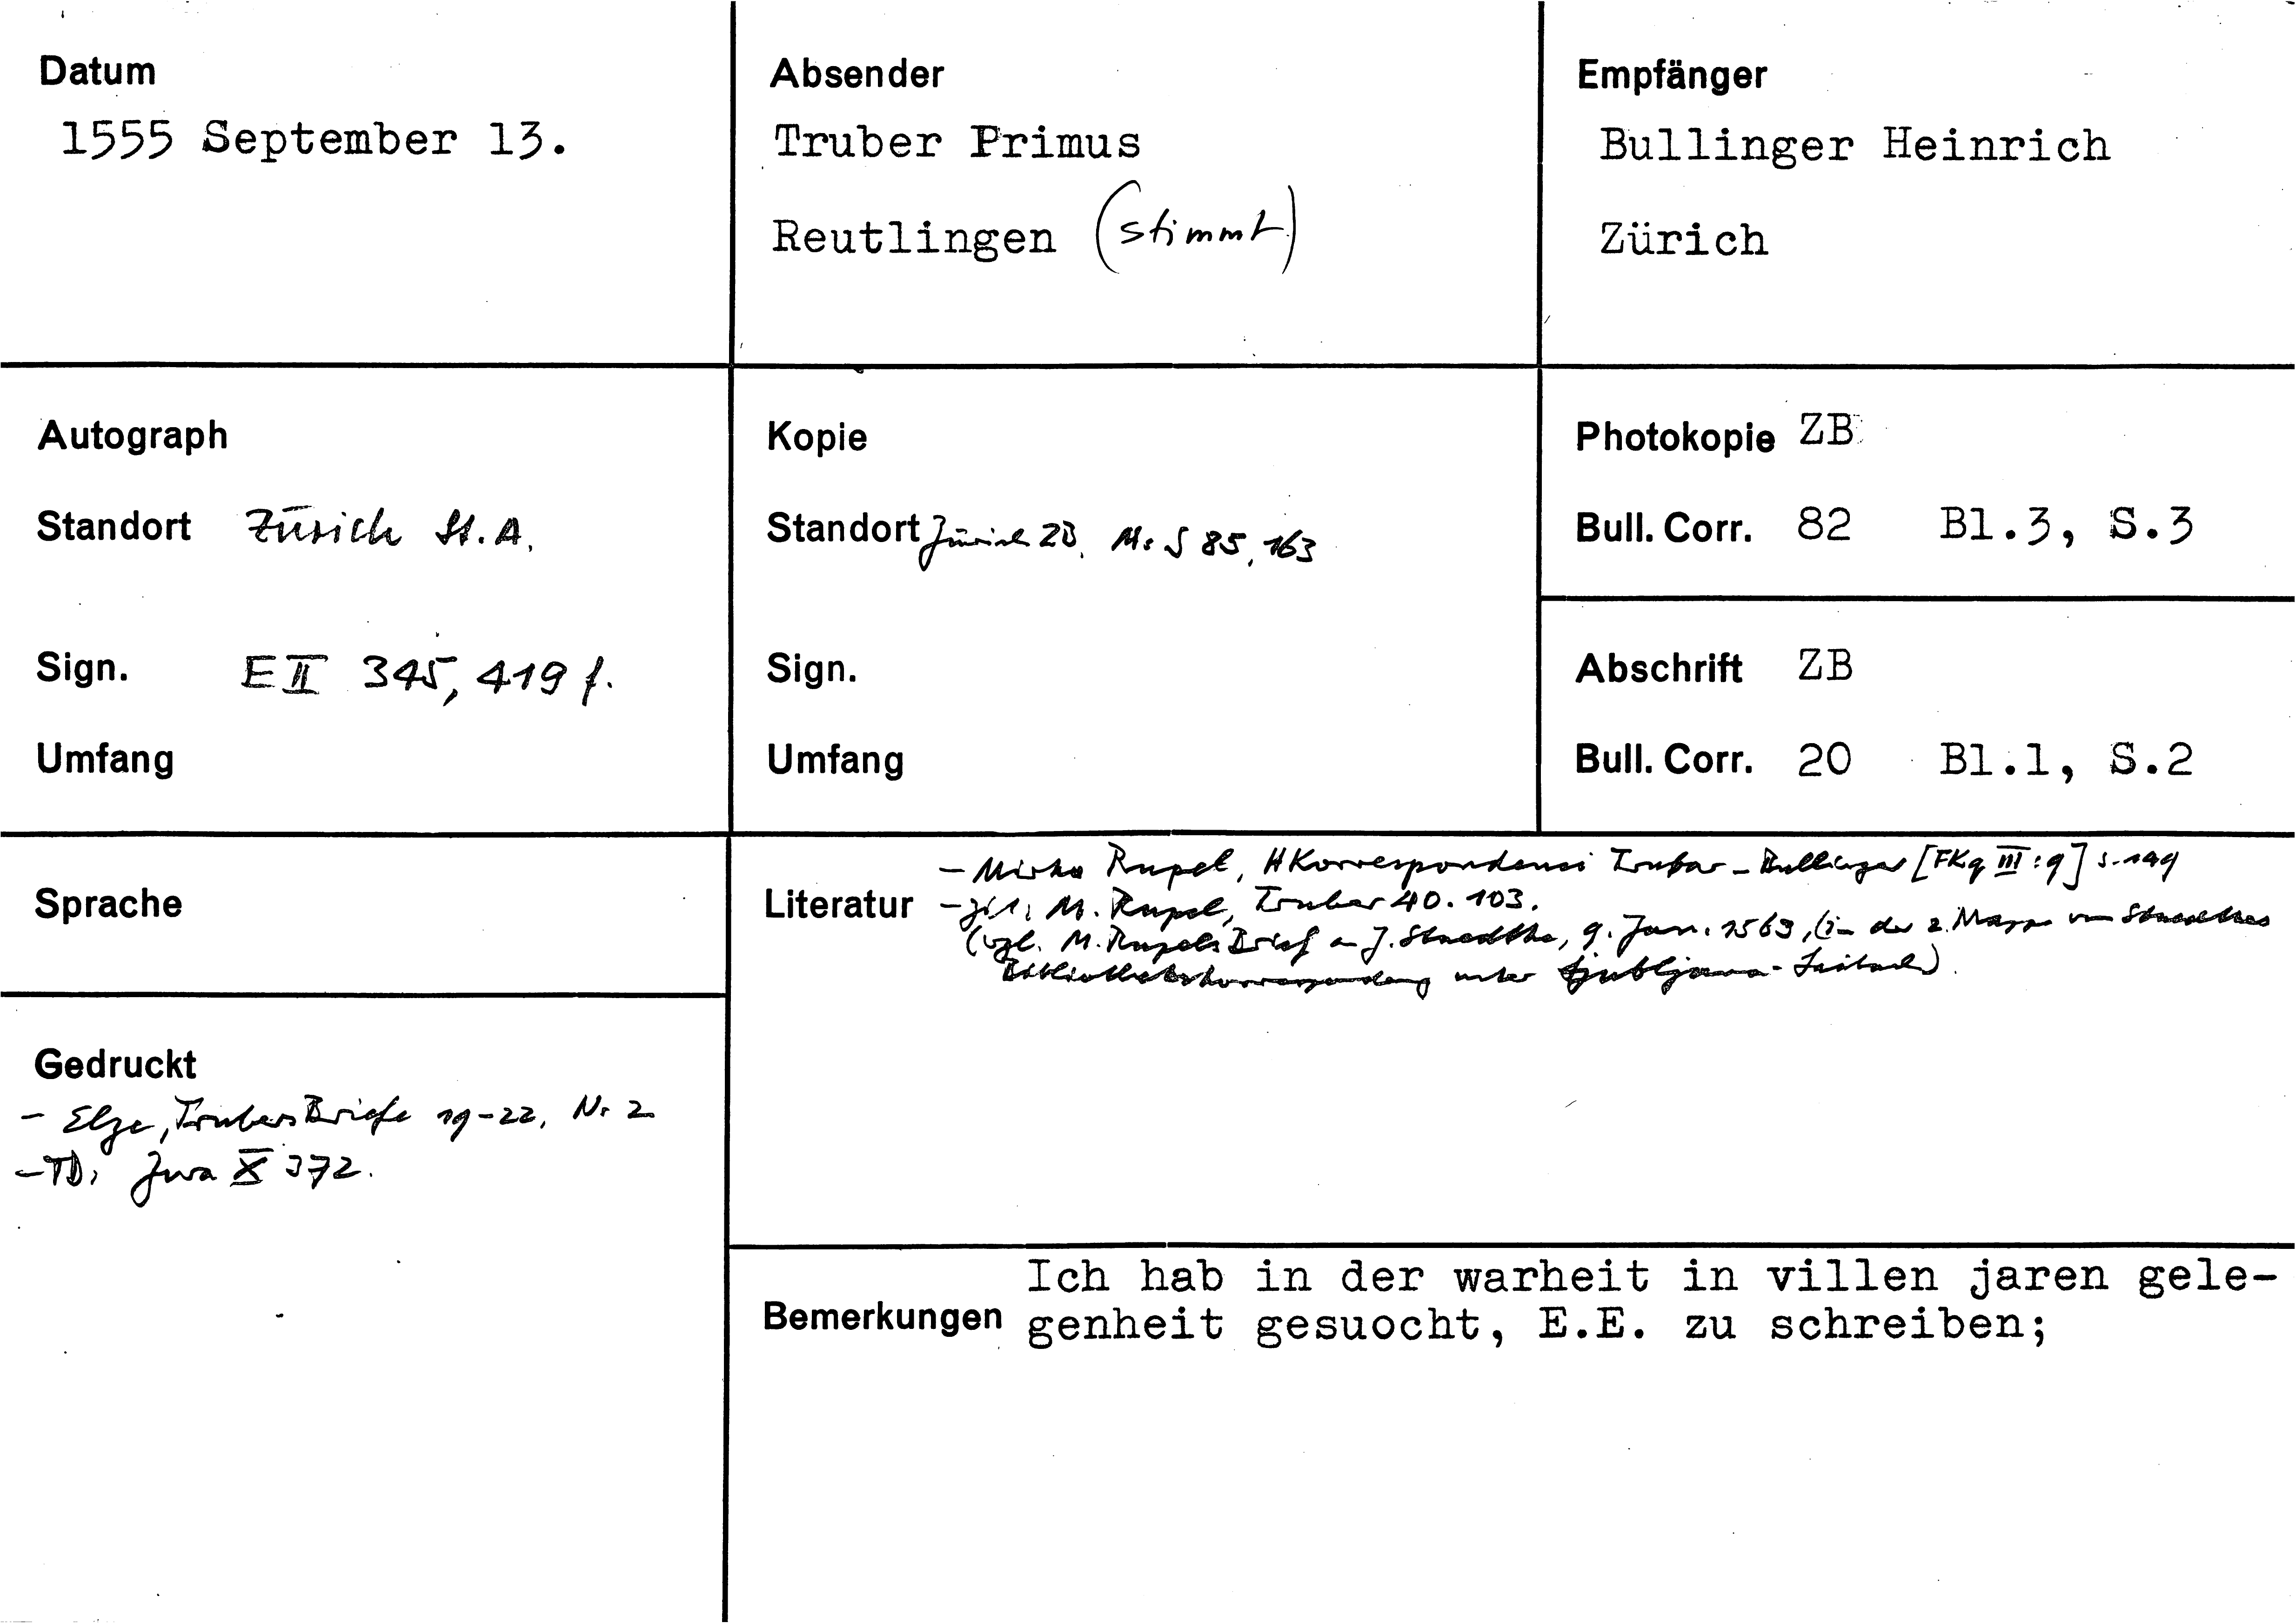 Datum
1555 September 13.
Absender
Truber Primus
Reutlingen (stimmt)
Empfänger
Bullinger Heinrich
Zürich
Autograph
Standort Zürich St.A.
Sign. E II 345, 419 f.
Umfang
Kopie
Standort Zürich ZB, Ms S 85, 163
Sign.
Umfang
Photokopie ZB
Bull. Corr. 82 Bl.3, S.3
Abschrift ZB
Bull. Corr. 20 Bl.1, S.2
Sprache
Gedruckt
- Elze, Trubers Briefe 19-22, Nr 2
- TD: Zwa X 372.
Literatur
- Mirko Rupel, Korrespondenz Trubar - Bullinger [FKg III : 9] S. 199
- zit. M. Rupel, Truber 40. 103.
(vgl. M. Rupels Brief an J. Staedtke, 9. Jan. 1563, (in der 2. Mappe von Staedtkes
Bibliothekskorrespondenz unter Ljubljana-Laibach).
Bemerkungen
Ich hab in der warheit in villen jaren gele-
genheit gesuocht, E.E. zu schreiben;